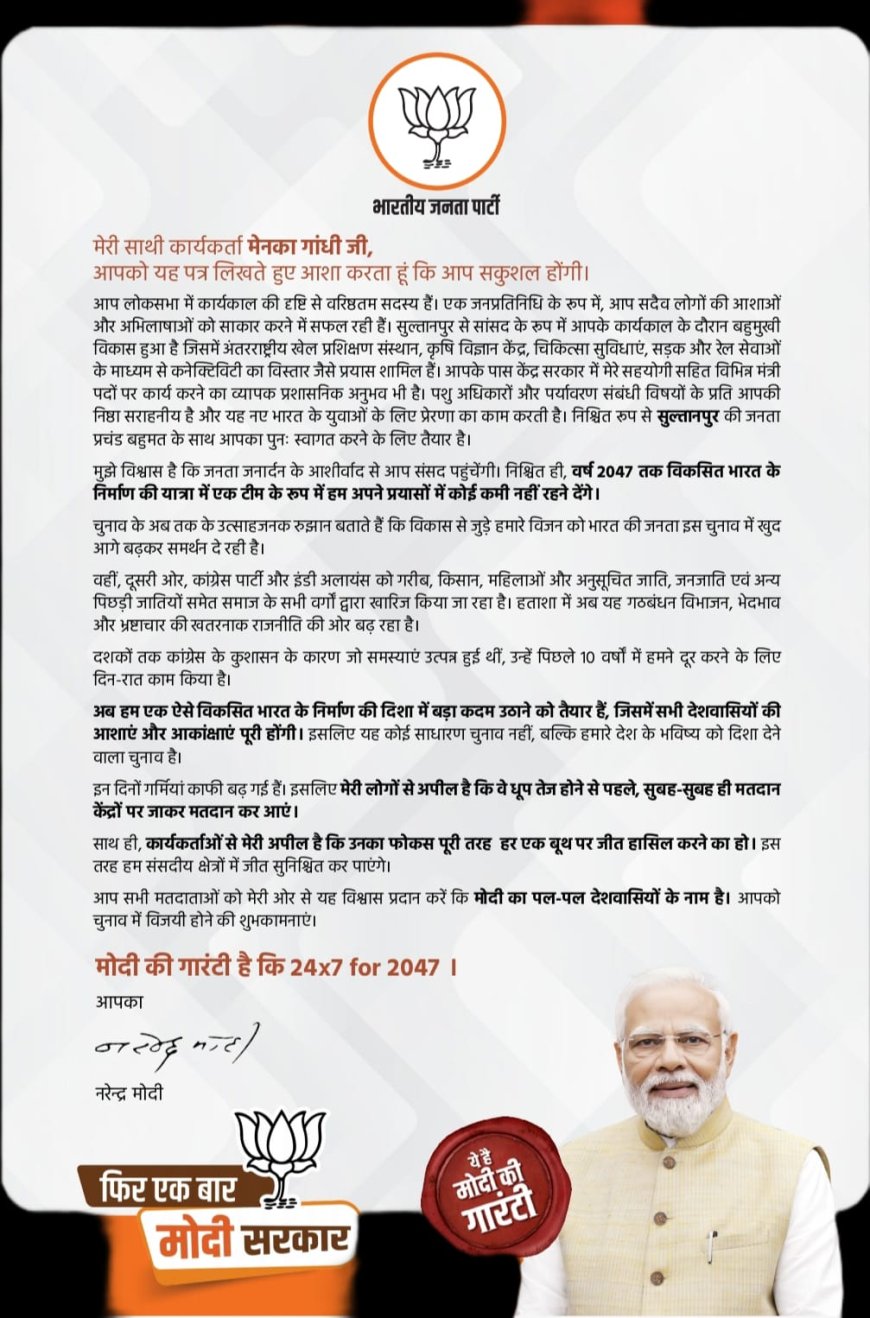 भारतीय जनता पार्टी
मेरी साथी कार्यकर्ता मेनका गांधी जी,
आपको यह पत्र लिखते हुए आशा करता हूं कि आप सकुशल होंगी।
आप लोकसभा में कार्यकाल की दृष्टि से वरिष्ठतम सदस्य हैं। एक जनप्रतिनिधि के रूप में, आप सदैव लोगों की आशाओं
और अभिलाषाओं को साकार करने में सफल रही हैं। सुल्तानपुर से सांसद के रूप में आपके कार्यकाल के दौरान बहुमुखी
विकास हुआ है जिसमें अंतरराष्ट्रीय खेल प्रशिक्षण संस्थान, कृषि विज्ञान केंद्र, चिकित्सा सुविधाएं, सड़क और रेल सेवाओं
के माध्यम से कनेक्टिविटी का विस्तार जैसे प्रयास शामिल हैं। आपके पास केंद्र सरकार में मेरे सहयोगी सहित विभिन्न मंत्री
पदों पर कार्य करने का व्यापक प्रशासनिक अनुभव भी है। पशु अधिकारों और पर्यावरण संबंधी विषयों के प्रति आपकी
निष्ठा सराहनीय है और यह नए भारत के युवाओं के लिए प्रेरणा का काम करती है। निश्चित रूप से सुल्तानपुर की जनता
प्रचंड बहुमत के साथ आपका पुनः स्वागत करने के लिए तैयार है।
मुझे विश्वास है कि जनता जनार्दन के आशीर्वाद से आप संसद पहुंचेंगी। निश्चित ही, वर्ष 2047 तक विकसित भारत के
निर्माण की यात्रा में एक टीम के रूप में हम अपने प्रयासों में कोई कमी नहीं रहने देंगे।
चुनाव के अब तक के उत्साहजनक रुझान बताते हैं कि विकास से जुड़े हमारे विजन को भारत की जनता इस चुनाव में खुद
आगे बढ़कर समर्थन दे रही है।
वहीं, दूसरी ओर, कांग्रेस पार्टी और इंडी अलायंस को गरीब, किसान, महिलाओं और अनुसूचित जाति, जनजाति एवं अन्य
पिछड़ी जातियों समेत समाज के सभी वर्गों द्वारा खारिज किया जा रहा है। हताशा में अब यह गठबंधन विभाजन, भेदभाव
और भ्रष्टाचार की खतरनाक राजनीति की ओर बढ़ रहा है।
दशकों तक कांग्रेस के कुशासन के कारण जो समस्याएं उत्पन्न हुई थीं, उन्हें पिछले 10 वर्षों में हमने दूर करने के लिए
दिन-रात काम किया है।
अब हम एक ऐसे विकसित भारत के निर्माण की दिशा में बड़ा कदम उठाने को तैयार हैं, जिसमें सभी देशवासियों की
आशाएं और आकांक्षाएं पूरी होंगी। इसलिए यह कोई साधारण चुनाव नहीं, बल्कि हमारे देश के भविष्य को दिशा देने
वाला चुनाव है।
इन दिनों गर्मियां काफी बढ़ गई हैं। इसलिए मेरी लोगों से अपील है कि वे धूप तेज होने से पहले, सुबह-सुबह ही मतदान
केंद्रों पर जाकर मतदान कर आएं।
साथ ही, कार्यकर्ताओं से मेरी अपील है कि उनका फोकस पूरी तरह हर एक बूथ पर जीत हासिल करने का हो। इस
तरह हम संसदीय क्षेत्रों में जीत सुनिश्चित कर पाएंगे।
आप सभी मतदाताओं को मेरी ओर से यह विश्वास प्रदान करें कि मोदी का पल-पल देशवासियों के नाम है। आपको
चुनाव में विजयी होने की शुभकामनाएं।
मोदी की गारंटी है कि 24x7 for 2047 ।
आपका
नरेन्द्र मोदी
नरेन्द्र मोदी
फिर एक बार
मोदी सरकार
ये है
मोदी की
गारंटी